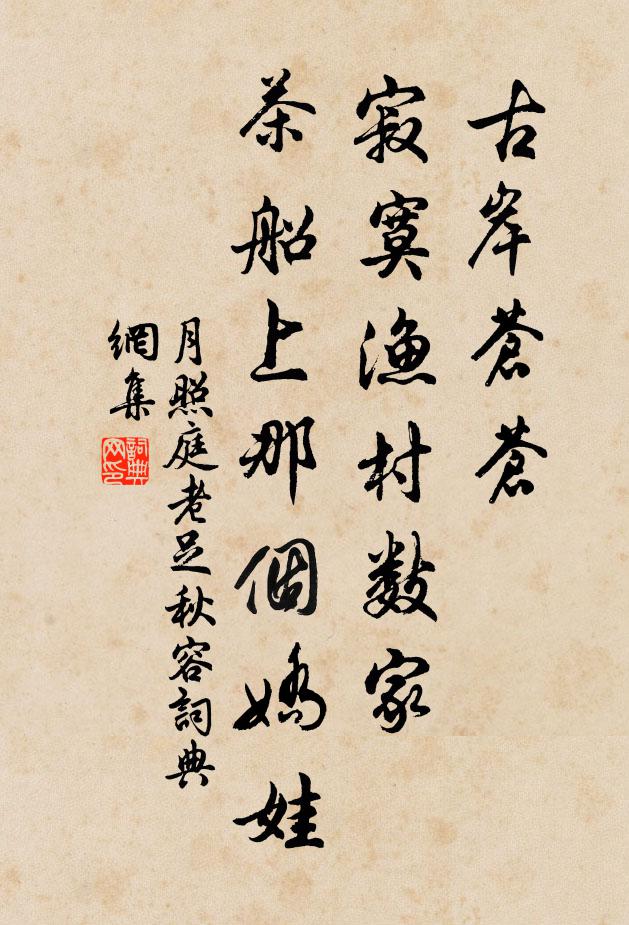 古岸蒼蒼
寂寞漁村數家
茶船上那個嬌娃
月照庭老足秋容詞典
網集
詞典
网印